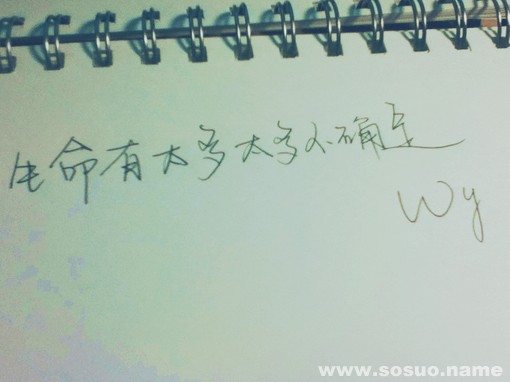 生命有太多太多不确定
Wy
www.sosuo.name